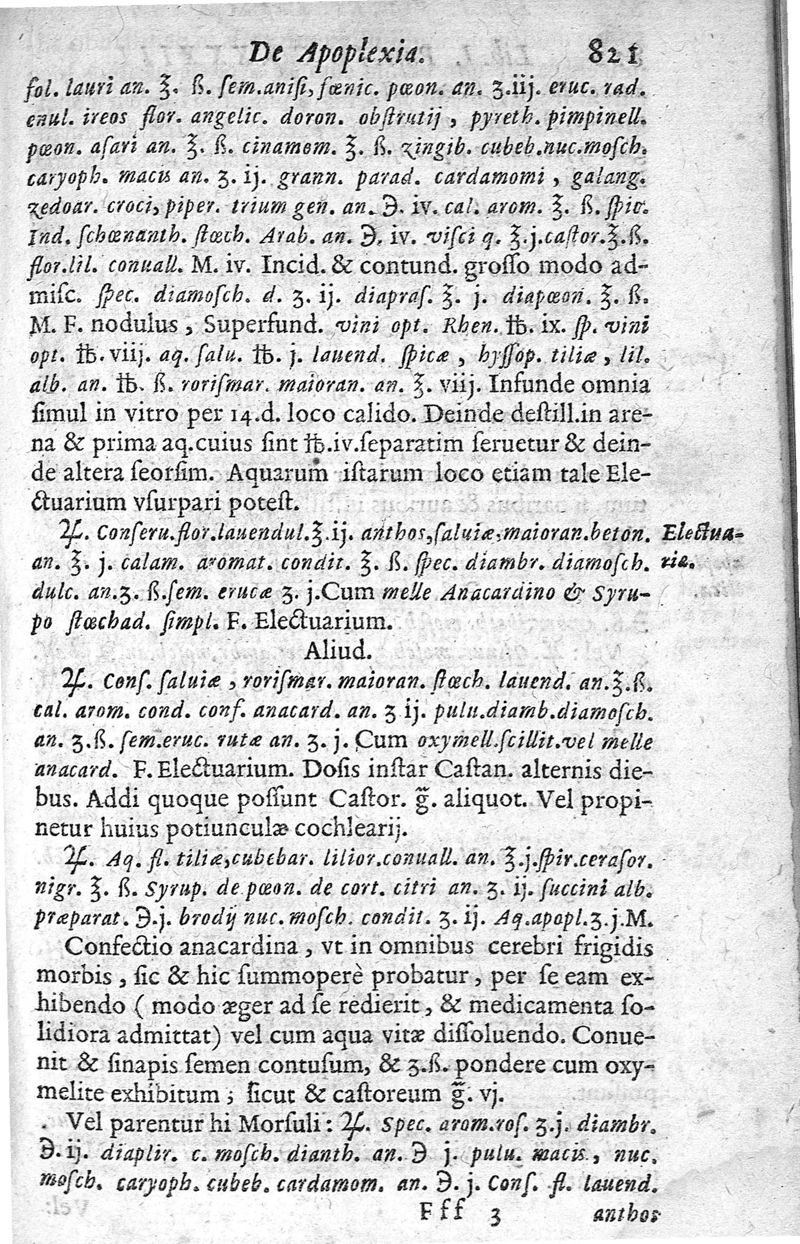 De Apoplexia. 821
fol. lauri an. ℥. ß. ſem.aniſi, fœnic. pœon. an. ʒ.iij. eruc. rad.
enul. ireos flor. angelic. doron. obſtrutij, pyreth. pimpinell.
pœon. aſari an. ℥. ß. cinamom. ℥. ß. zingib. cubeb.nuc.moſch.
caryoph. macis an. ʒ. ij. grann. parad. cardamomi, galang.
zedoar. croci, piper. trium gen. an. ℈. iv. cal. arom. ℥. ß. ſpic.
Ind. ſchœnanth. ſtœch. Arab. an. ℈. iv. viſci q. ℥.j.caſtor.℥.ß.
flor.lil. conuall. M. iv. Incid. & contund. groſſo modo ad-
miſc. ſpec. diamoſch. d. ʒ. ij. diapraſ. ℥. j. diapœon. ℥. ß.
M. F. nodulus, Superfund. vini opt. Rhen. ℔. ix. ſp. vini
opt. ℔. viij. aq. ſalu. ℔. j. lauend. ſpicæ, hyſſop. tiliæ, lil.
alb. an. ℔. ß. roriſmar. maioran. an. ℥. viij. Infunde omnia
ſimul in vitro per 14.d. loco calido. Deinde deſtill.in are-
na & prima aq.cuius ſint ℔.iv.ſeparatim ſeruetur & dein-
de altera ſeorſim. Aquarum iſtarum loco etiam tale Ele-
ctuarium vſurpari poteſt.
℞. Conſeru.flor.lauendul.℥.ij. anthos,ſaluiæ,maioran.beton.
Electua-
ria.
an. ℥. j. calam. aromat. condit. ℥. ß. ſpec. diambr. diamoſch.
dulc. an.ʒ. ß.ſem. erucæ ʒ. j.Cum melle Anacardino & Syru-
po ſtœchad. ſimpl. F. Electuarium.
Aliud.
℞. Conſ. ſaluiæ, roriſmar. maioran. ſtœch. lauend. an.℥.ß.
cal. arom. cond. conf. anacard. an. ʒ ij. pulu.diamb.diamoſch.
an. ʒ.ß. ſem.eruc. rutæ an. ʒ. j. Cum oxymell.ſcillit.vel melle
anacard. F. Electuarium. Doſis inſtar Caſtan. alternis die-
bus. Addi quoque poſſunt Caſtor. g̃. aliquot. Vel propi-
netur huius potiunculæ cochlearij.
℞. Aq. fl. tiliæ,cubebar. lilior.conuall. an. ℥.j.ſpir.ceraſor.
nigr. ℥. ß. Syrup. de pœon. de cort. citri an. ʒ. ij. ſuccini alb.
præparat. ℈.j. brodij nuc.moſch. condit. ʒ. ij. Aq.apopl.ʒ.j.M.
Confectio anacardina, vt in omnibus cerebri frigidis
morbis, ſic & hic ſummoperè probatur, per ſe eam ex-
hibendo ( modo æger ad ſe redierit, & medicamenta ſo-
lidiora admittat) vel cum aqua vitæ diſſoluendo. Conue-
nit & ſinapis ſemen contuſum, & ʒ.ß. pondere cum oxy-
melite exhibitum; ſicut & caſtoreum g̃. vj.
Vel parentur hi Morſuli: ℞. Spec. arom.roſ. ʒ.j. diambr.
℈.ij. diaplir. c. moſch. dianth. an. ℈ j. pulu. macis, nuc.
moſch. caryoph. cubeb. cardamom. an. ℈. j. Conſ. fl. lauend.
Fff 3 anthos